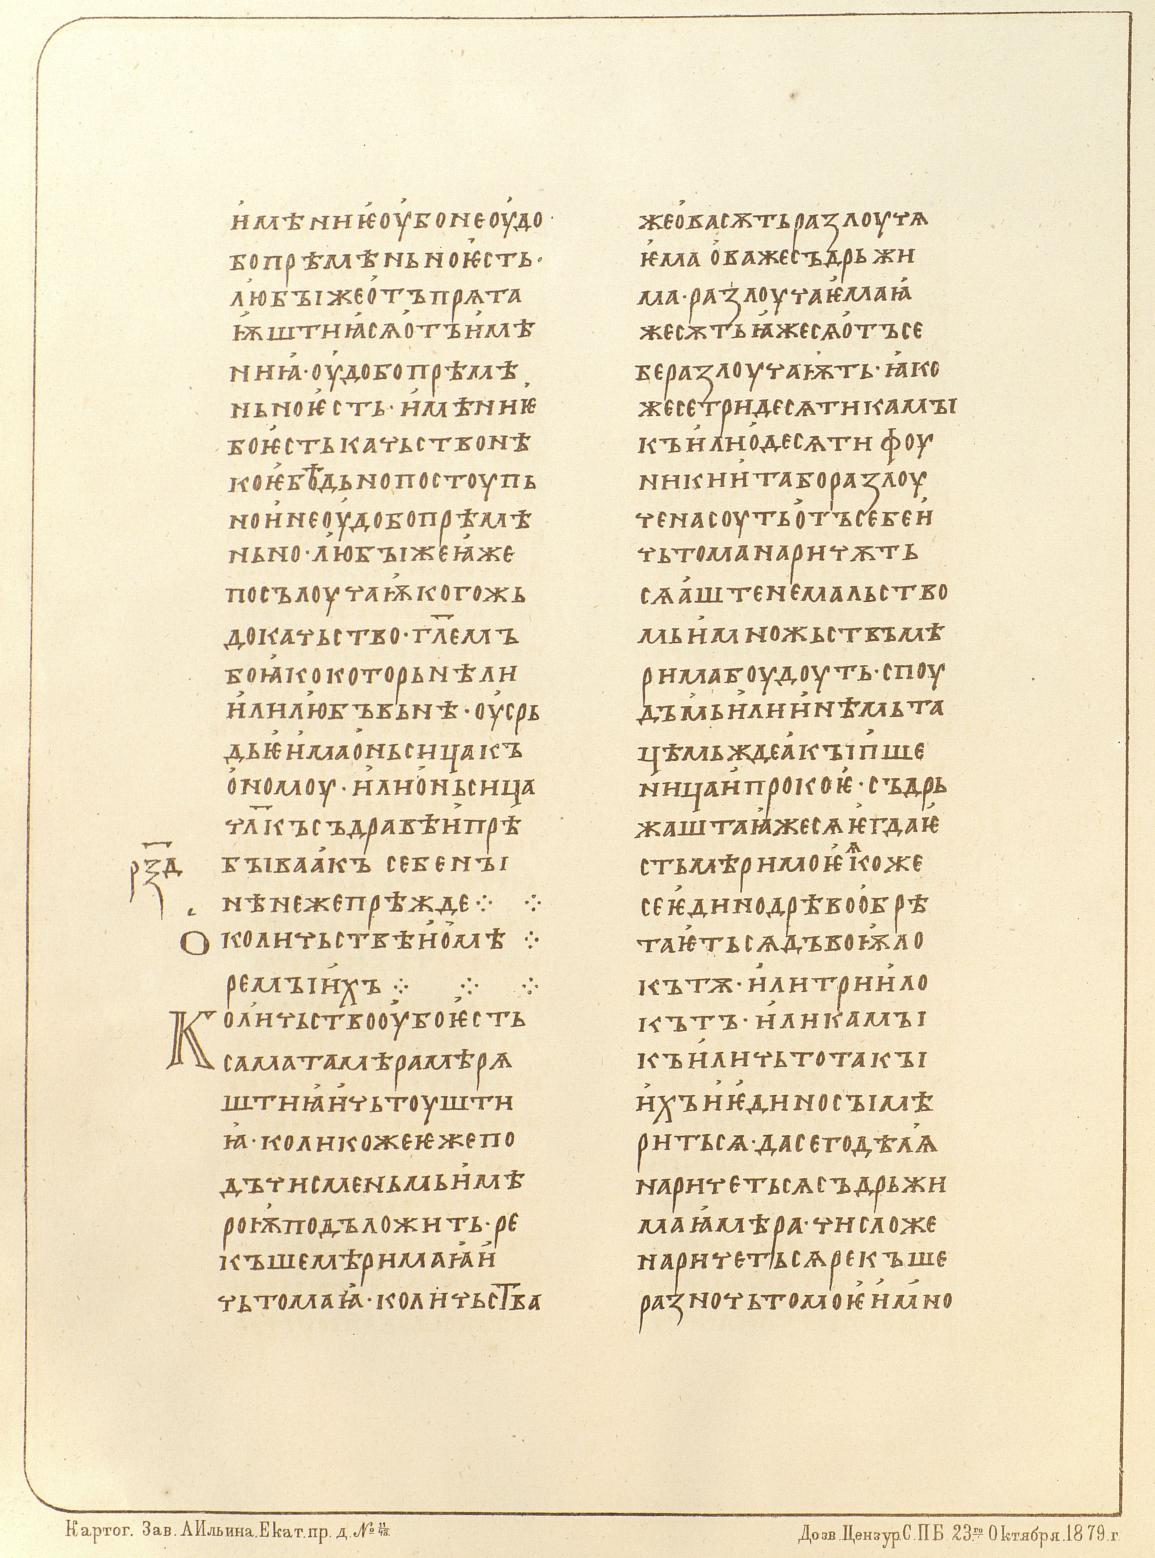 и҆мѣниѥ҆оу҆бонеоу҆до·
бопрѣмѣньноѥ҆сть·
л҆юбꙑжео҆тъпрѧта
ѭ҆штиꙗ҆сѧо҆тъи҆мѣ
ниꙗ҆·оу҆добопрѣмѣ
ньноѥ҆сть·и҆мѣниѥ
боѥ҆стькаꙥьствонѣ
коѥ҆б҃одьнопостоупь
ной҆неоу҆добопрѣмѣ
ньно·л҆юбꙑжеꙗ҆же
посълоуꙥаѭ҆когожь
докаꙥьство·гл҃емъ
боꙗ҆кокоторьнѣли
и҆лил҆юбъвьнѣ·оу҆срь
дьѥ҆и҆мао҆ньсицакъ
о҆номоу·и҆лио҆ньсица
ꙥл҃късъдравѣи҆прѣ
бꙑваа҆къ себенꙑ
р҃ѯд нѣнежепрѣжде⁘ ⁘
О колиꙥьствѣни҆о҆мѣ ⁘
ремꙑи҆хъ⁘ ⁘ ⁘
Колиꙥьствооу҆боѥ҆сть
саматамѣрамѣрѧ
штиꙗ҆и҆ꙥьтоушти
ꙗ҆·коликожеѥжепо
дъꙥисменьмьи҆мѣ
роѭ҆подъложить·ре
къшемѣримаꙗ҆и҆
ꙥьтомаꙗ҆·колиꙥьст҃ва
жео҆васѫтьразлоуꙥѧ
ѥ҆ма о҆важесъдрьжи
ма·разлоуꙥаѥ҆маꙗ҆
жесѫтьꙗ҆жесѧо҆тъсе
беразлоуꙥаѭ҆ть·ꙗ҆ко
жесетридесѧтикамꙑ
къи҆лио҆десѧти фоу
никии҆таборазлоу
ꙥенасоутьо҆тъсебеи҆
ꙥьтоманариꙥѫть
сѧа҆штенемальство
мьи҆множьствъмѣ
римабоудоуть·споу
дъмьи҆лии҆нѣмьта
цѣмьждеа҆къіп҆ше
ницаи҆прокоѥ҆·съдрь
жаштаꙗ҆жесѧѥ҆гдаѥ҆
стьмѣримоѥ҆ꙗ҆коже
сеѥ҆динодрѣвоо҆брѣ
таѥ҆тьсѧдъвоѭ҆ло
кътѫ·и҆литрии҆ло
кътъ·и҆ликамꙑ
къи҆лиꙥьтотакꙑ
и҆хъи҆ѥ҆диносꙑмѣ
ритьсѧ·дасегодѣлꙗ
нариꙥетьсѧсъдрьжи
маꙗ҆мѣра·ꙥисложе
нариꙥетьсѧрекъше
разноꙥьтомоѥ҆и҆мно
Картог. Зав. А Ильина. Екат. пр. д. №
Дозв. Цензур. С. П Б 23го Октября. 1879. г.